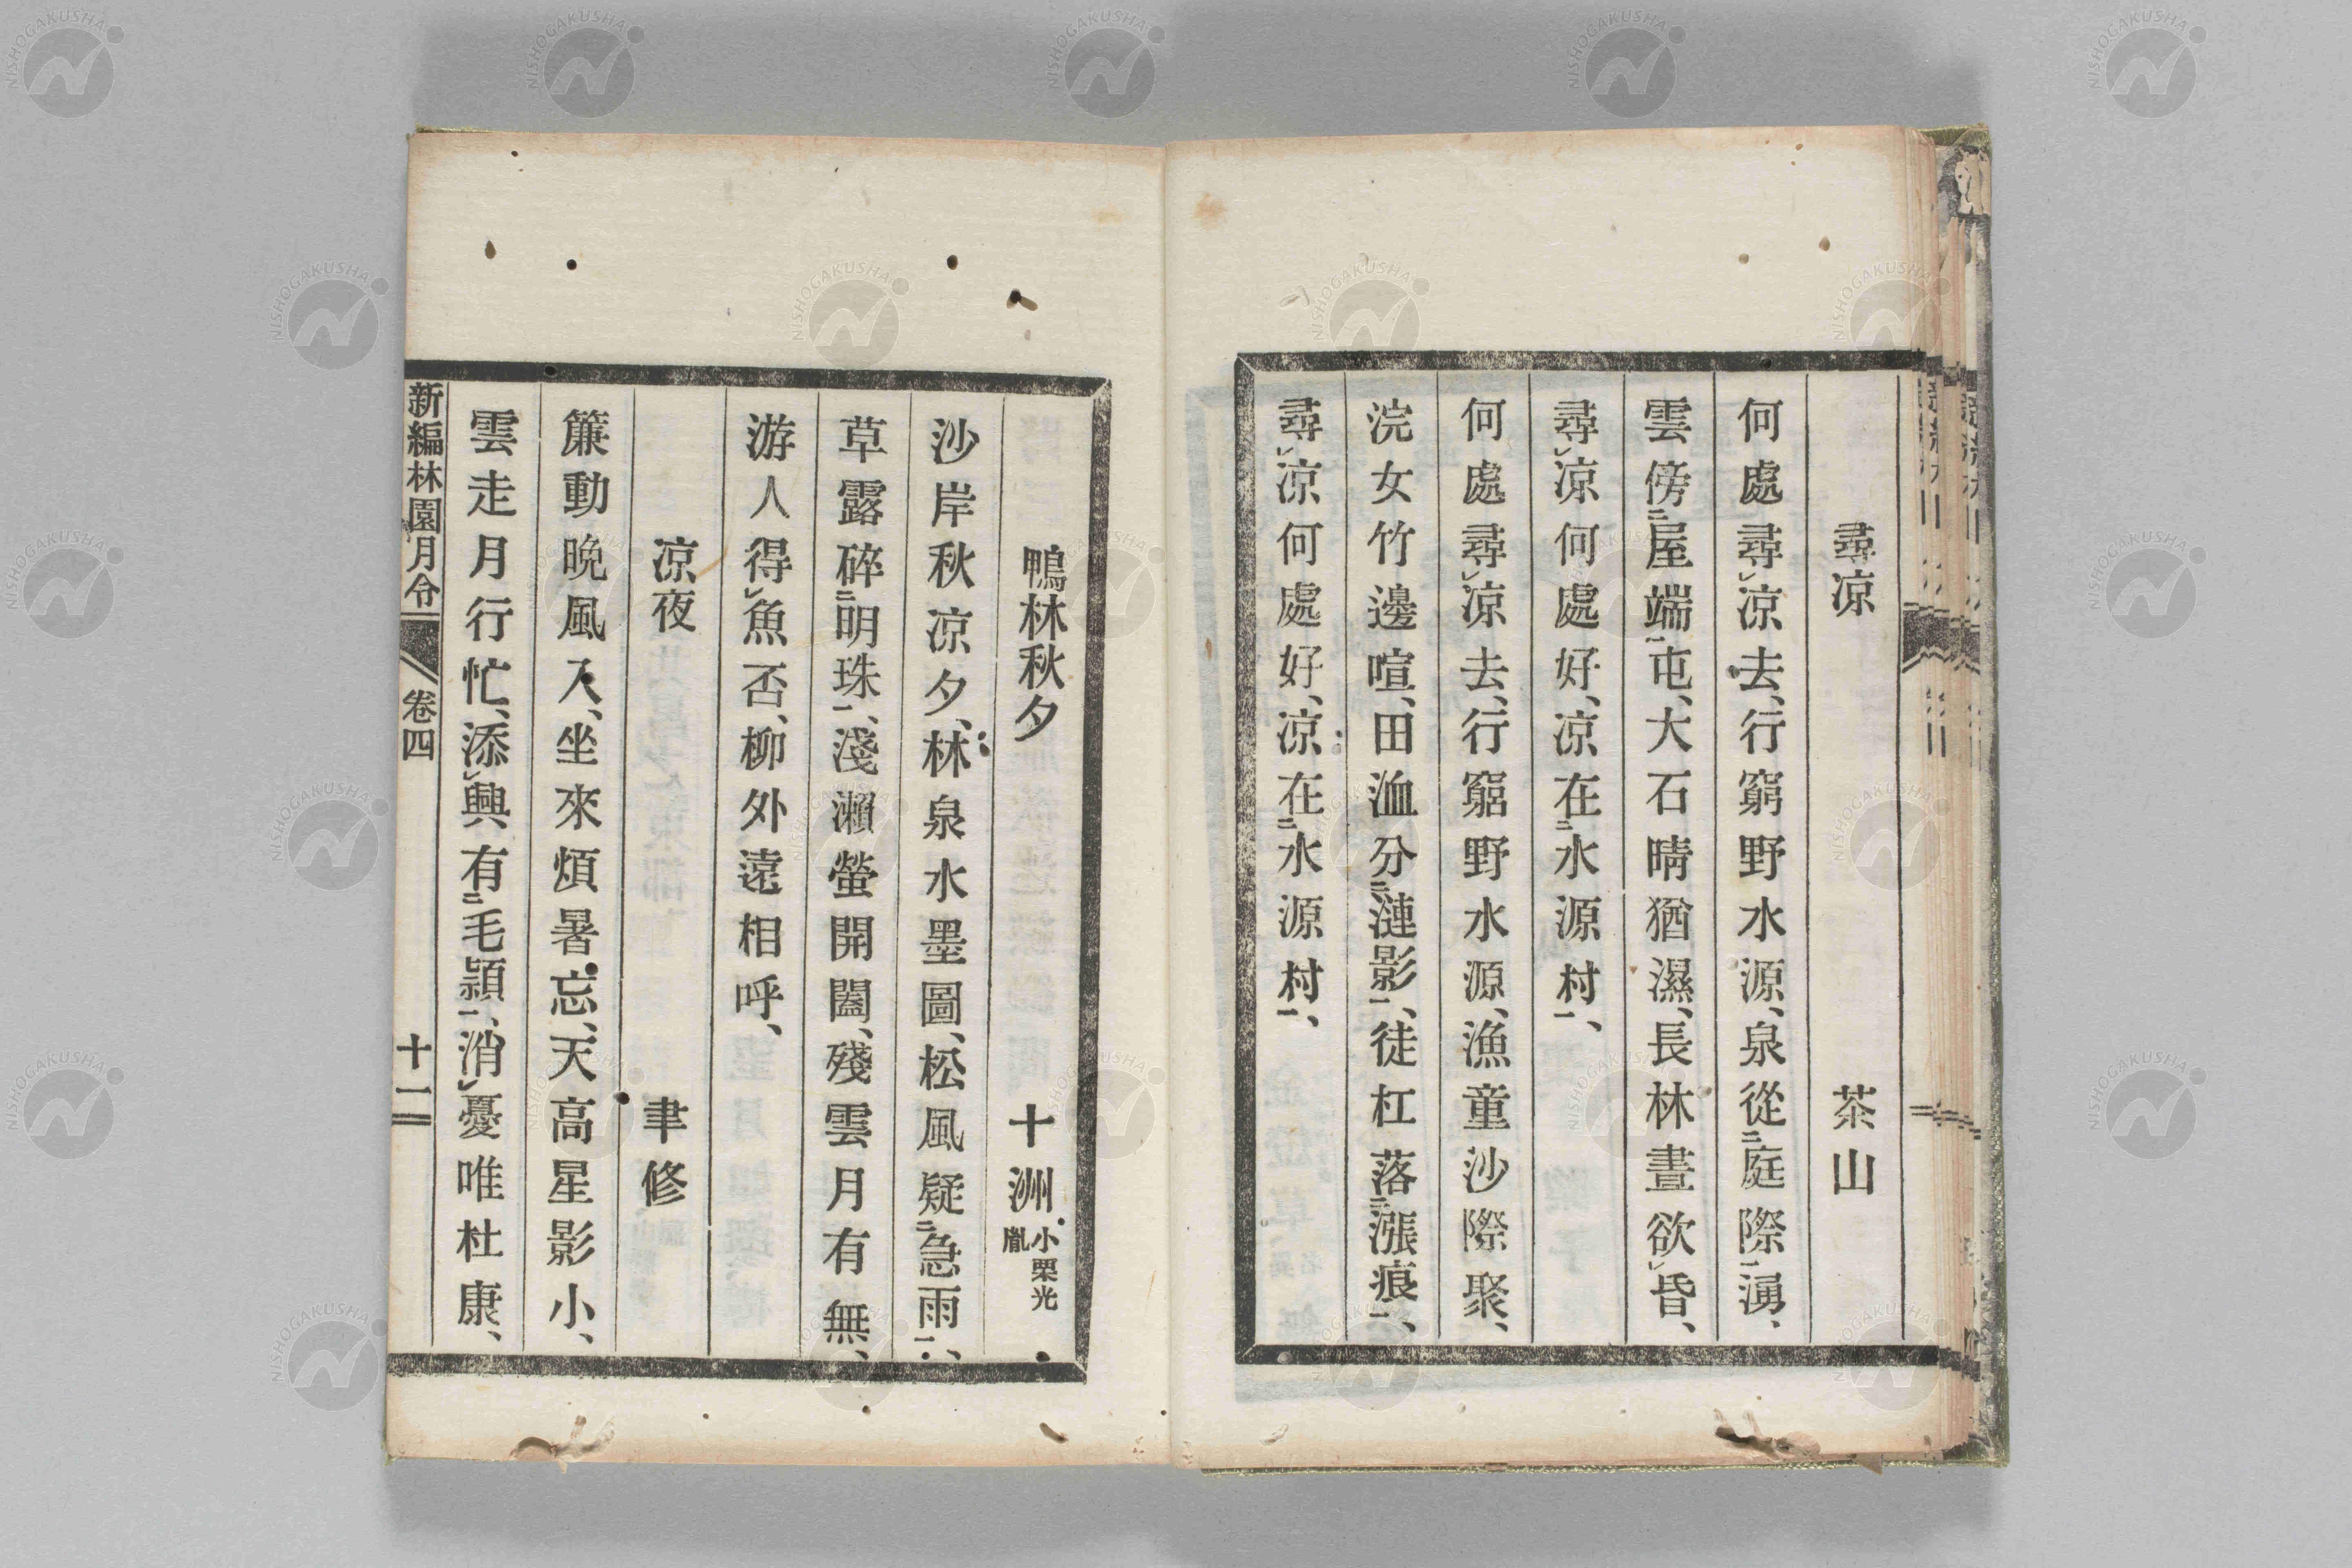 尋凉　茶山
何處尋㆑凉去、行窮野水源、泉從㆓庭際㆒湧、
雲傍㆓屋端㆒屯、大石晴猶濕、長林晝欲㆑昏、
尋㆑凉何處好、凉在㆓水源村㆒、
何處尋㆑凉去、行窮野水源、漁童沙際聚、
浣女竹邊喧、田洫分㆓漣影㆒、徒杠落㆓漲痕㆒、
尋㆑凉何處好、凉在㆓水源村㆒、
鴨林秋夕　十洲 小栗光胤
沙岸秋凉夕、林泉水墨圖、松風疑㆓急雨㆒、
草露碎㆓明珠㆒、淺瀨螢開闔、殘雲月有無、
游人得㆑魚否、柳外遠相呼、
凉夜　聿修
簾動晩風入、坐來煩暑忘、天高星影小、
雲走月行忙、添㆑興有㆓毛穎㆒、消㆑憂唯杜康、
新編林園月令　卷四　十二
NISHOGAKUSHA